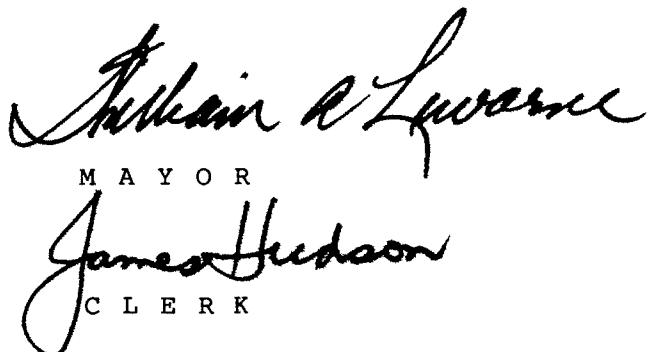 William A
M A Y O R
James Hudson
C L E R K